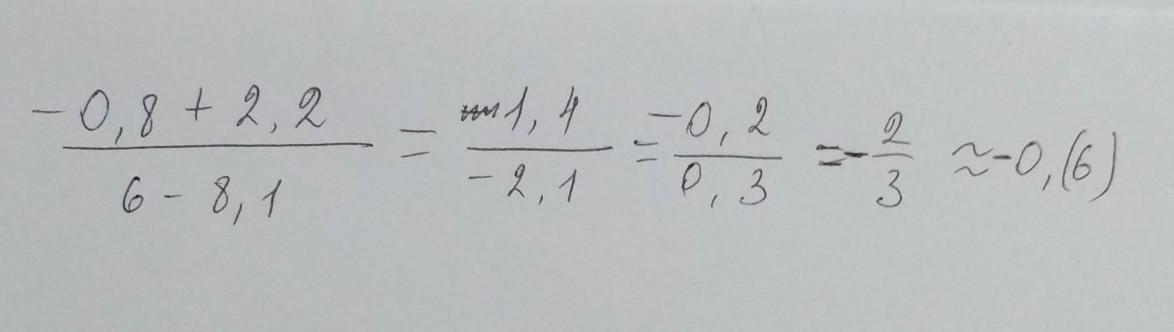 (-0,8 + 2,2)/(6 - 8,1) = 1,4/(-2,1) = (-0,2)/(0,3) = -2/3 ≈ -0,(6)